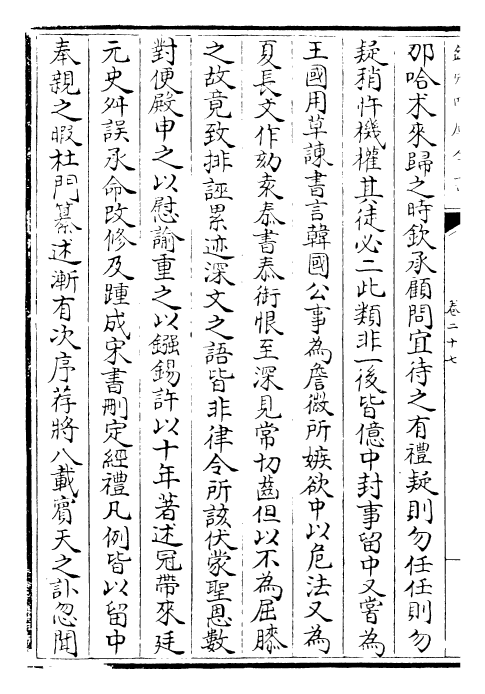 卷二十七
卭哈术來歸之時欽承顧問宜待之有禮疑則勿任任則勿
疑稍忤機權其徒必二此類非一後皆億中封事留中又嘗為
王國用草諫書言韓國公事為詹徽所嫉欲中以危法又為
夏長文作劾袁泰書泰銜恨至深見常切齒但以不為屈膝
之故竟致排誣累迹深文之語皆非律令所該伏蒙聖恩數
對便殿申之以慰諭重之以鏹錫許以十年著述冠帶來廷
元史舛誤承命改修及踵成宋書刪定經禮凡例皆以留中
奉親之暇杜門纂述漸有次序荐將八載賓天之訃忽聞